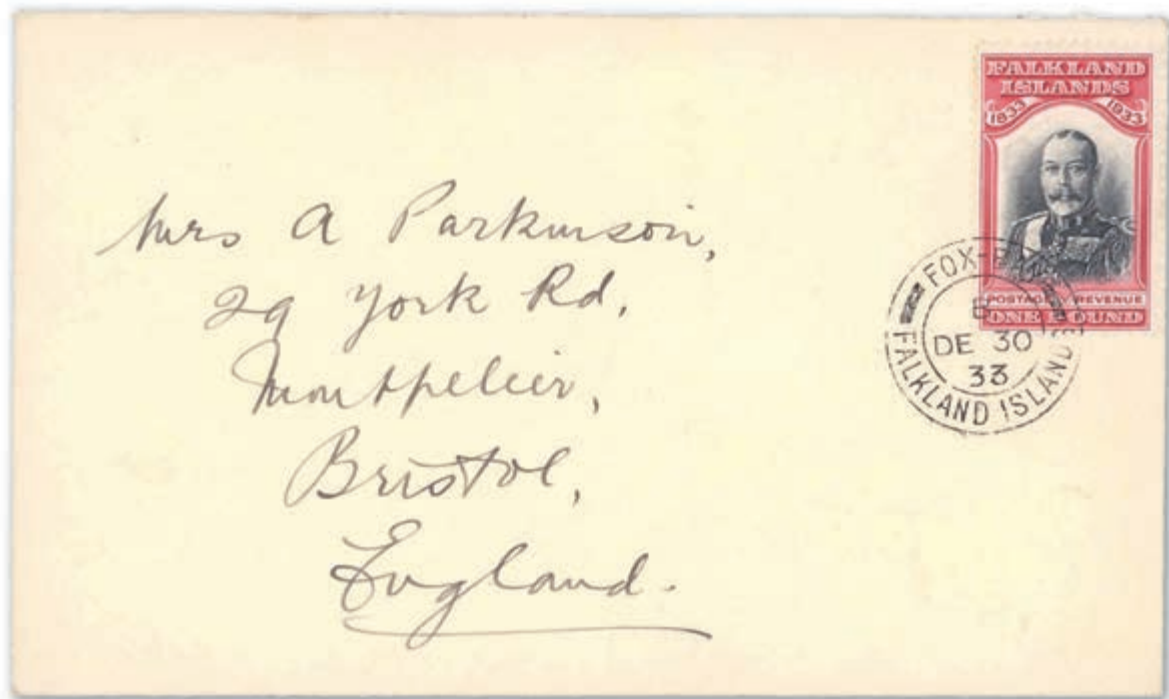 FALKLAND
ISLANDS
1833 1933
POSTAGE REVENUE
ONE POUND
FOX-BAY
DE 30
33
FALKLAND ISLANDS
Mrs A Parkinson,
29 York Rd,
Montpelier,
Bristol,
England.